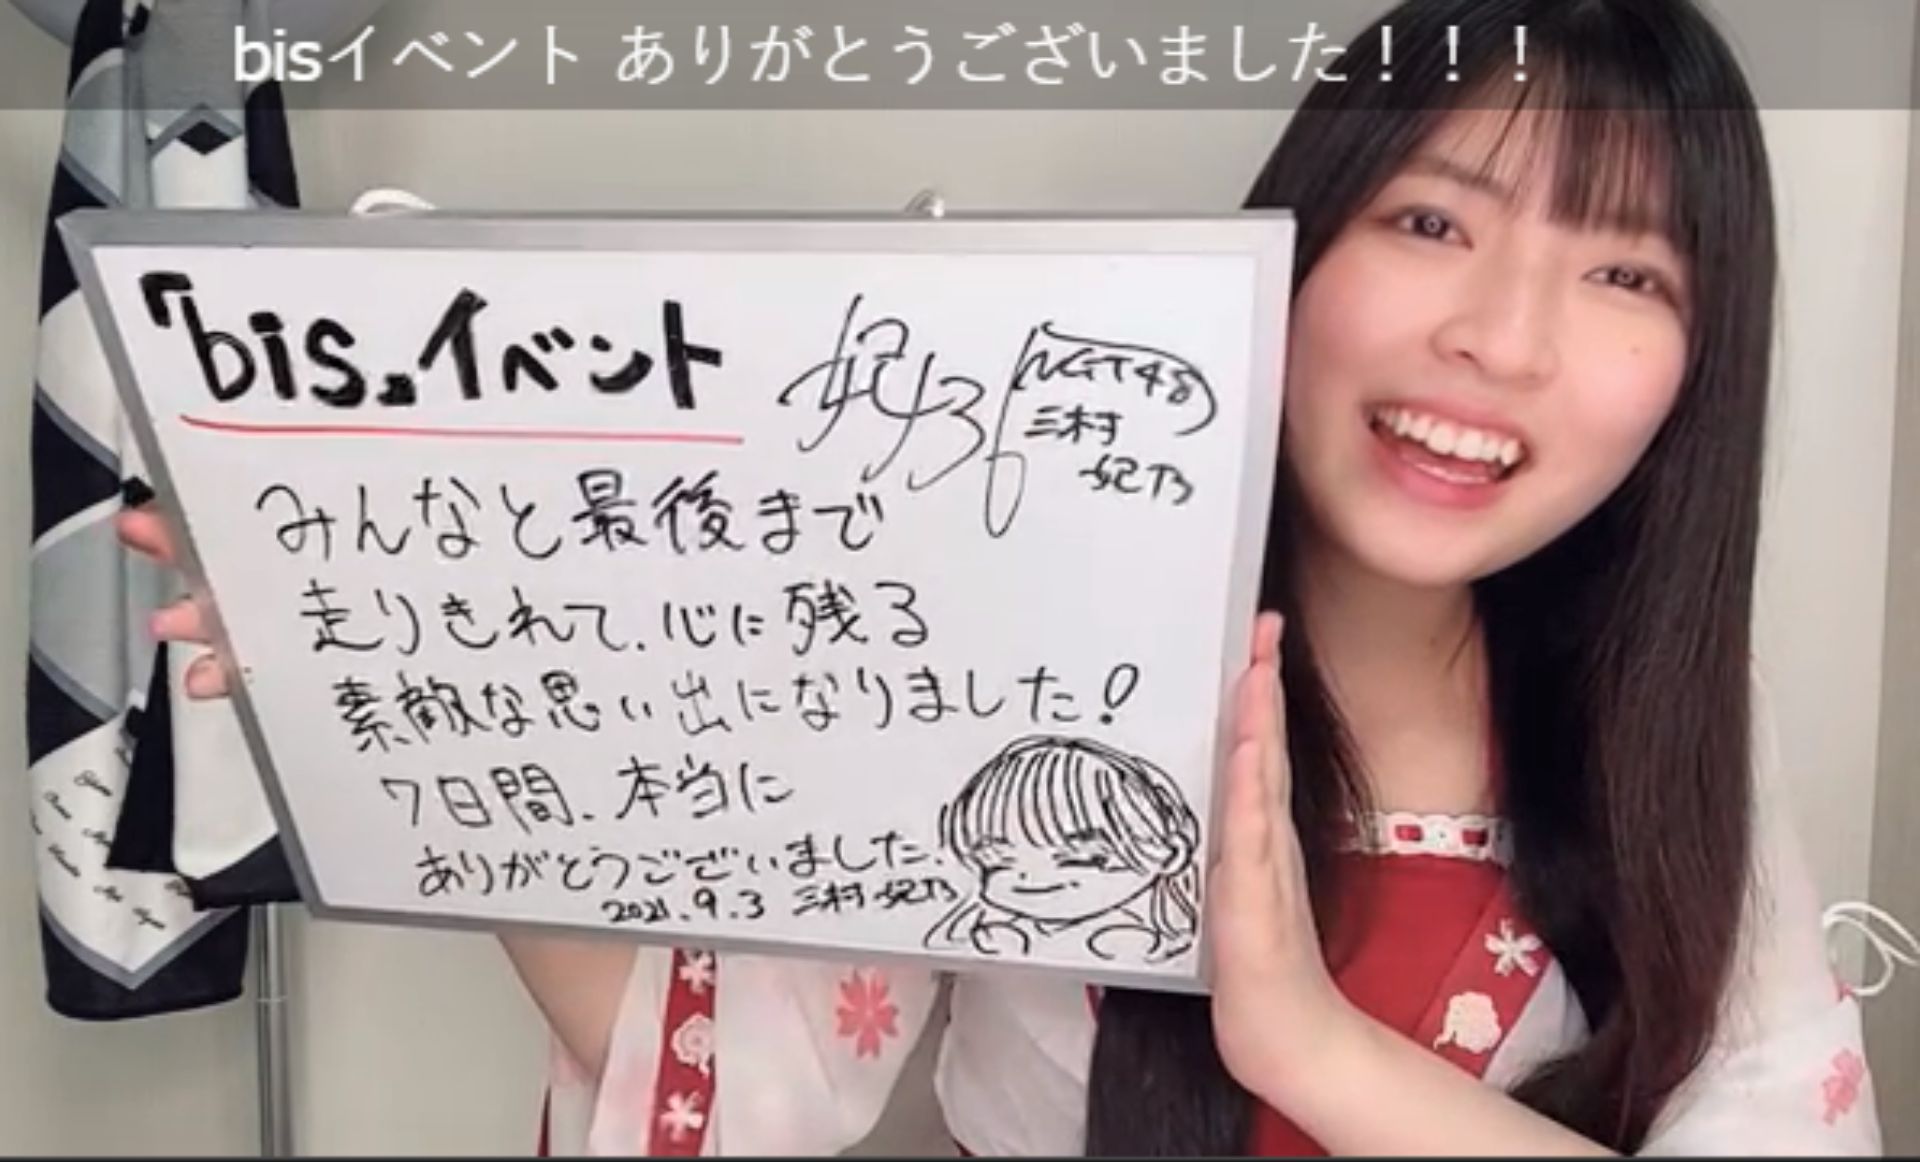 bisイベント ありがとうございました！！！
「bis」イベント
NGT48
三村
妃乃
みんなと最後まで
走りきれて、心に残る
素敵な思い出になりました！
7日間、本当に
ありがとうございました。
2021.9.3 三村妃乃